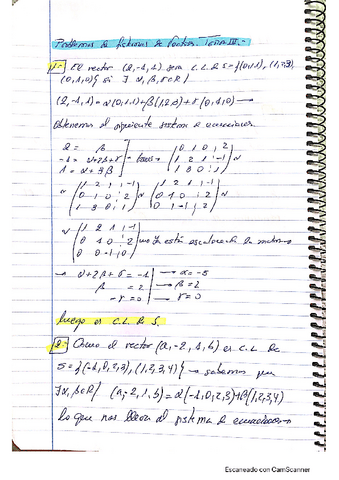 Problemas de
1.- El vector (2,-1,1) será C.L de S={(0,1,1), (1,2,3)
(0,1,0)} si ∃ α, β, γ ∈ R/
(2,-1,1) = α(0,1,1)+β(1,2,3)+γ(0,1,0) →
Obtenemos el siguiente sistema de ecuaciones
2 = β
-1 = α+2β+γ
1 = α+3β
(0 1 0 ¦ 2
1 2 1 ¦ -1
1 3 0 ¦ 1) ~
~ (1 2 1 ¦ -1
0 1 0 ¦ 2
1 3 0 ¦ 1) ~ (1 2 1 ¦ -1
0 1 0 ¦ 2
0 1 -1 ¦ 2) ~
~ (1 2 1 ¦ -1
0 1 0 ¦ 2
0 0 -1 ¦ 0) ya está escalonada la matriz
→ α+2β+γ = -1 → α = -5
β = 2 → β = 2
-γ = 0 → γ = 0
luego es C.L de S.
2.- Como el vector (a,-2,1,b) es C.L de
S={(-1,0,2,3), (1,2,3,4)} → sabemos que
∃ α, β ∈ R/ (a,-2,1,b) = α(-1,0,2,3)+β(1,2,3,4)
lo que nos lleva al sistema de ecuaciones →
Escaneado con CamScanner